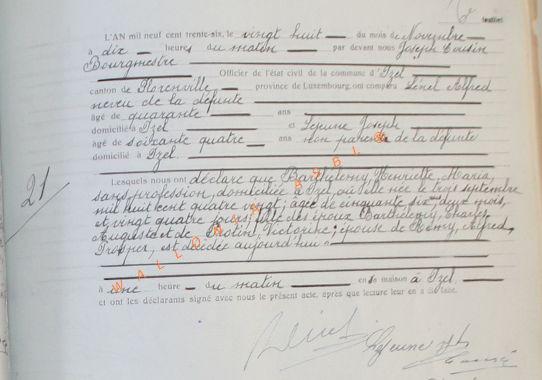 feuillet
L'AN mil neuf cent trente-six, le vingt huit du mois de Novembre
à dix heures du matin par devant nous Joseph Cousin
Bourgmestre
Officier de l'état civil de la commune d'Izel
canton de Florenville province de Luxembourg, ont comparu Alfred
neveu de la défunte
âgé de quarante ans
domicilié à Izel et Lejeune Joseph
âgé de soixante quatre ans non parent de la défunte
domicilié à Izel.
21
Lesquels nous ont déclaré que Barthélemy, Henriette, Maria,
sans profession, domiciliée à Izel, où elle née le trois septembre
mil huit cent quatre vingt; âgée de cinquante six ans deux mois,
et vingt quatre jours, fille des époux Barthélemy, Charles,
Auguste et de Victorine; épouse de Remy, Alfred,
Prosper, est décédée aujourd'hui
à une heure du matin en sa maison à Izel.
et ont les déclarants signé avec nous le présent acte, après que lecture leur en a été faite.
Lejeune
WALLONIE BSBI